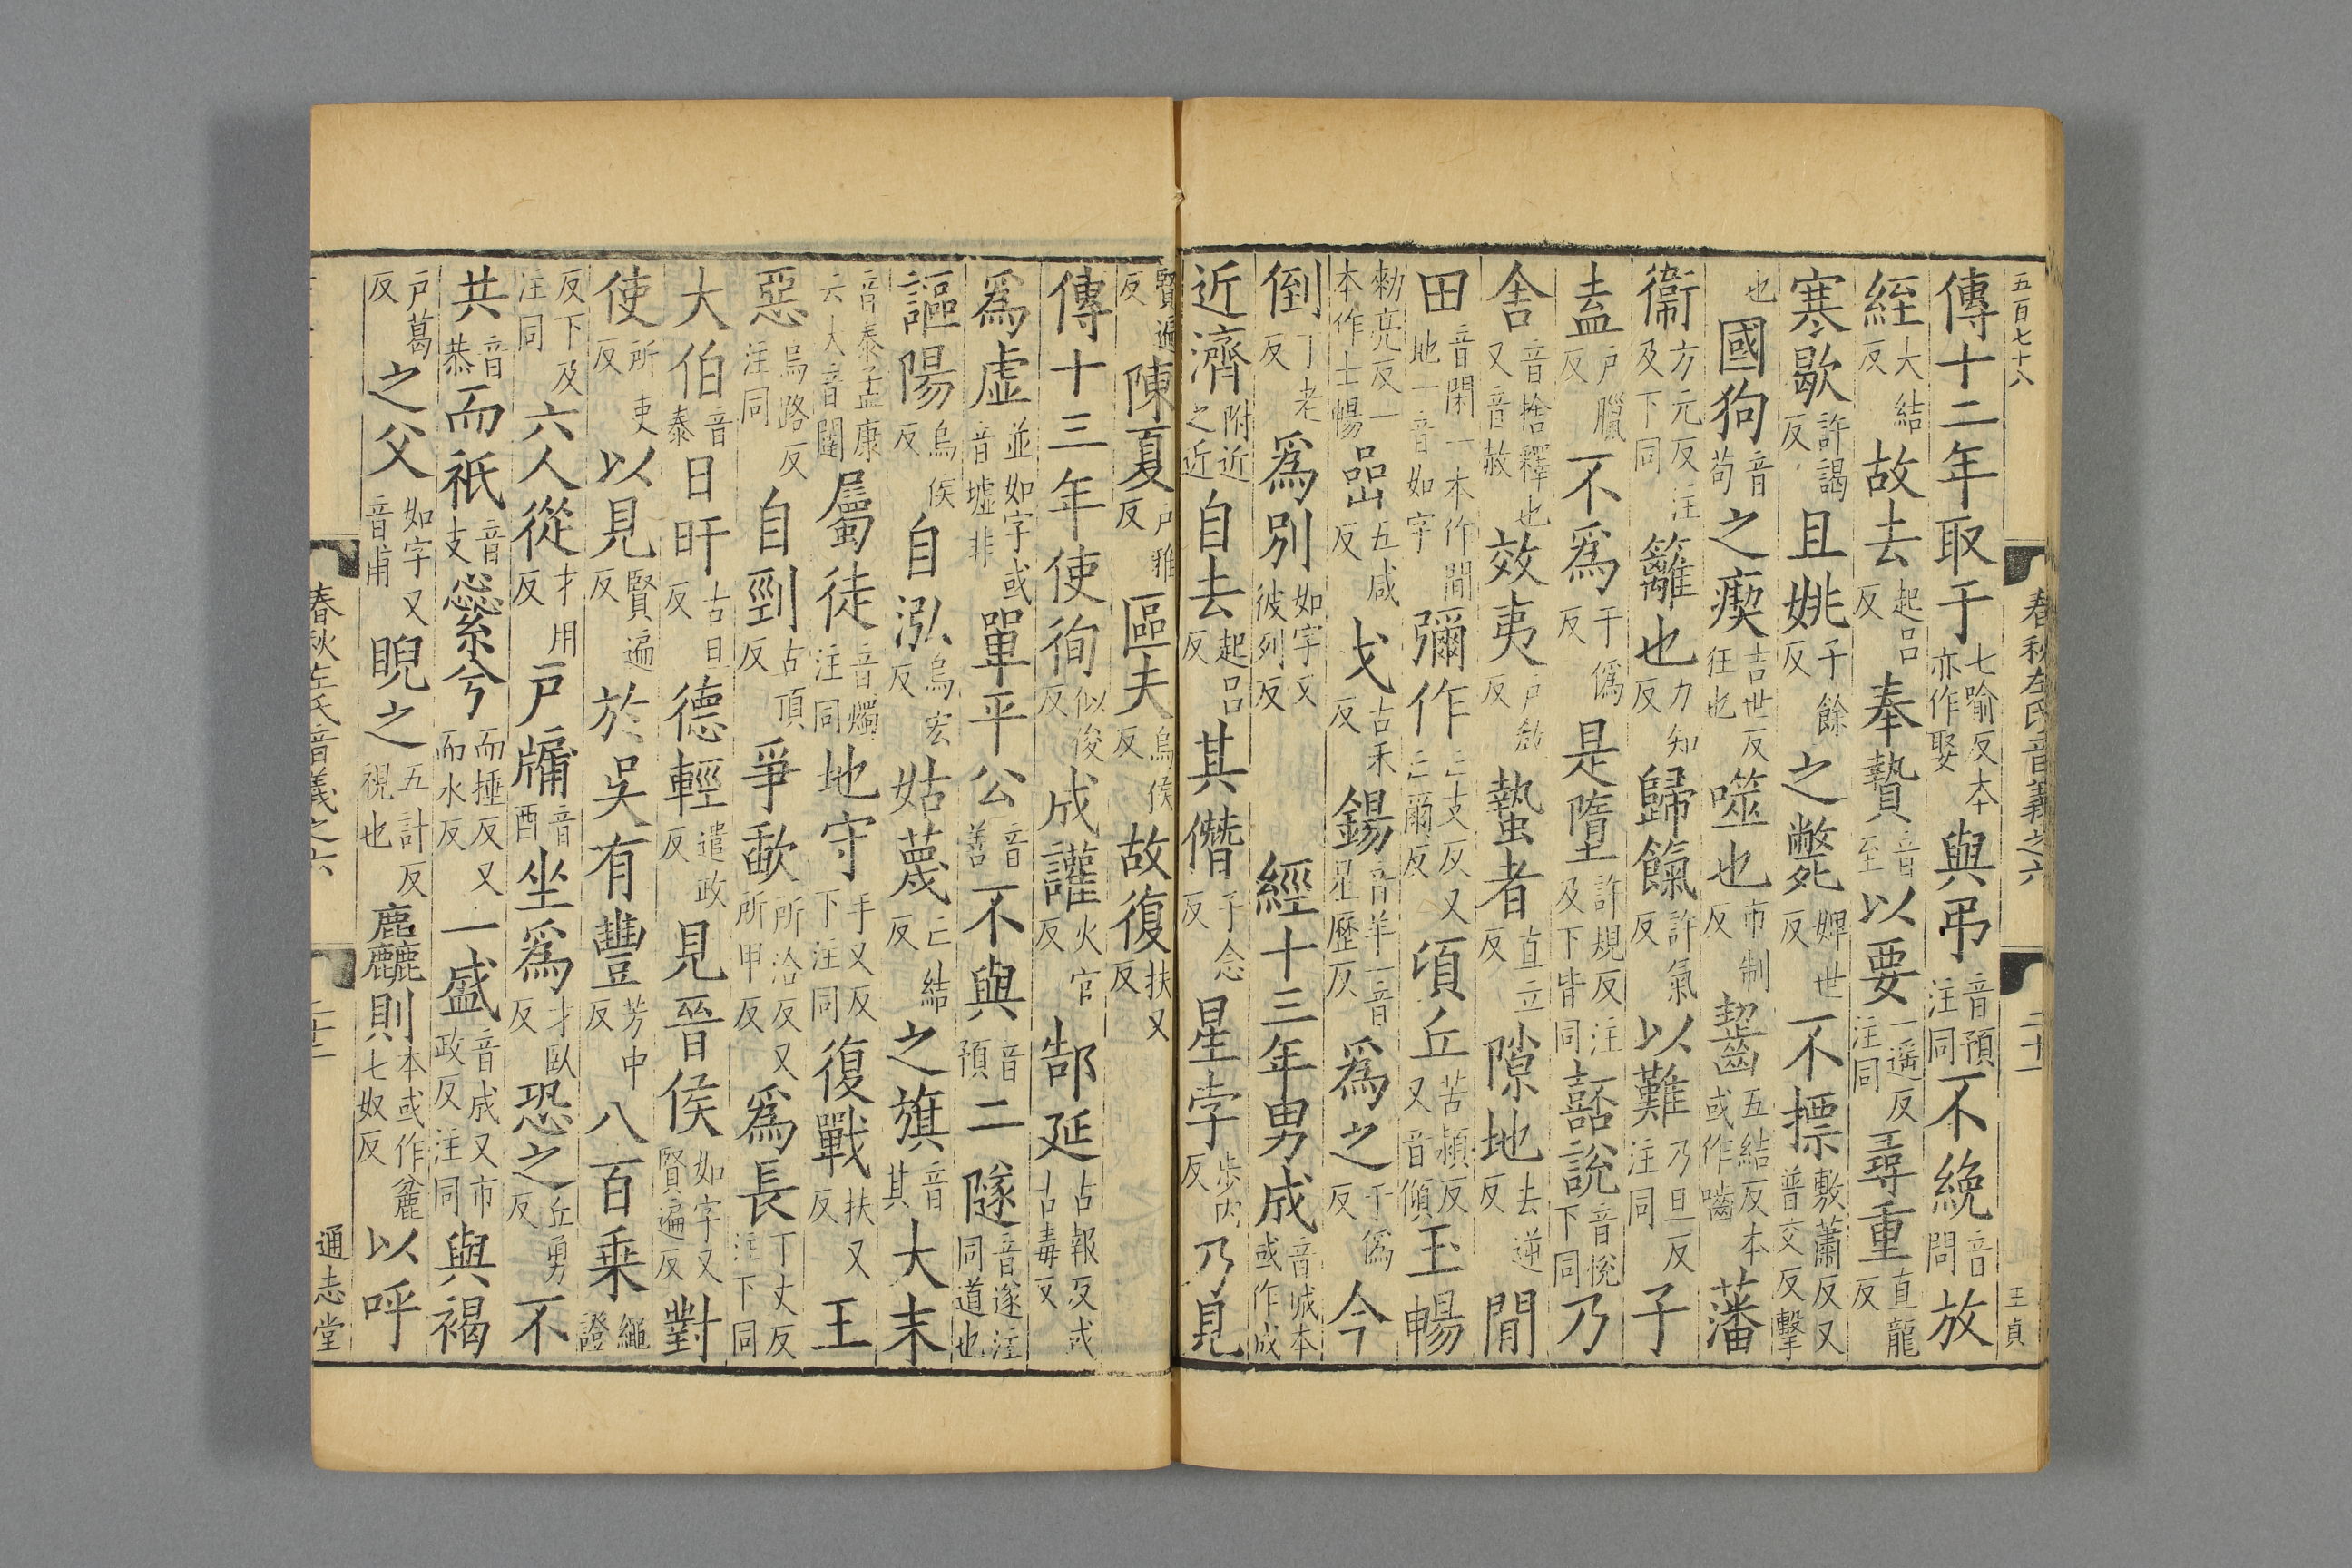 五百七十八 春秋左氏音義之六 二十一 王貞
傳十二年取于七喻反本亦作娶與弔音預注同不絻音問放
絰大結反故去起呂反奉贄音至以要一遥反注同尋重直龍反
寒歇許謁反且姚子餘反之斃婢世反不摽敷蕭反又普交反擊
也國狗音苟之瘈吉世反狂也噬也市制反齧五結反本或作嚙藩
衞方元反注及下同籬也力知反歸餼許氣反以難乃旦反注同子
盍戶臘反不爲于僞反是墮許規反注及下皆同嚭說音悅下同乃
舍音捨釋也又音赦效夷戶教反蟄者直立反隙地去逆反閒
田音閑一本作閒地一音如字彌作亡支反又亡爾反頃丘苦潁反又音傾玉暢
勑亮反一本作士暢嵒五咸反戈古禾反鍚音羊一音星歷反爲之于僞反今
倒丁老反爲別如字又彼列反 經十三年男成音城本或作成
近濟附近之近自去起呂反其僭子念反星孛步內反乃見
賢遍反陳夏戶雅反區夫烏侯反故復扶又反
傳十三年使徇似俊反成讙火官反郜延古報反或古毒反
爲虛並如字或音墟非單平公音善不與音預二隧音遂注同道也
謳陽烏侯反自泓烏宏反姑蔑亡結反之旗音其大末
音泰孟康云大音闥屬徒音燭注同地守手又反下注同復戰扶又反王
惡烏路反注同自剄古頂反爭歃所洽反又所甲反爲長丁丈反注下同
大伯音泰日旰古旦反德輕遣政反見晉侯如字又賢遍反對
使所吏反以見賢遍反於吳有豐芳中反八百乘繩證
反下及注同六人從才用反戶牖音酉坐爲才臥反恐之丘勇反不
共音恭而祇音支繠兮而捶反又而水反一盛音成又市政反注同與褐
戶葛反之父如字又音甫睨之五計反視也麤則本或作麄七奴反以呼
春秋左氏音義之六 二十一 通志堂